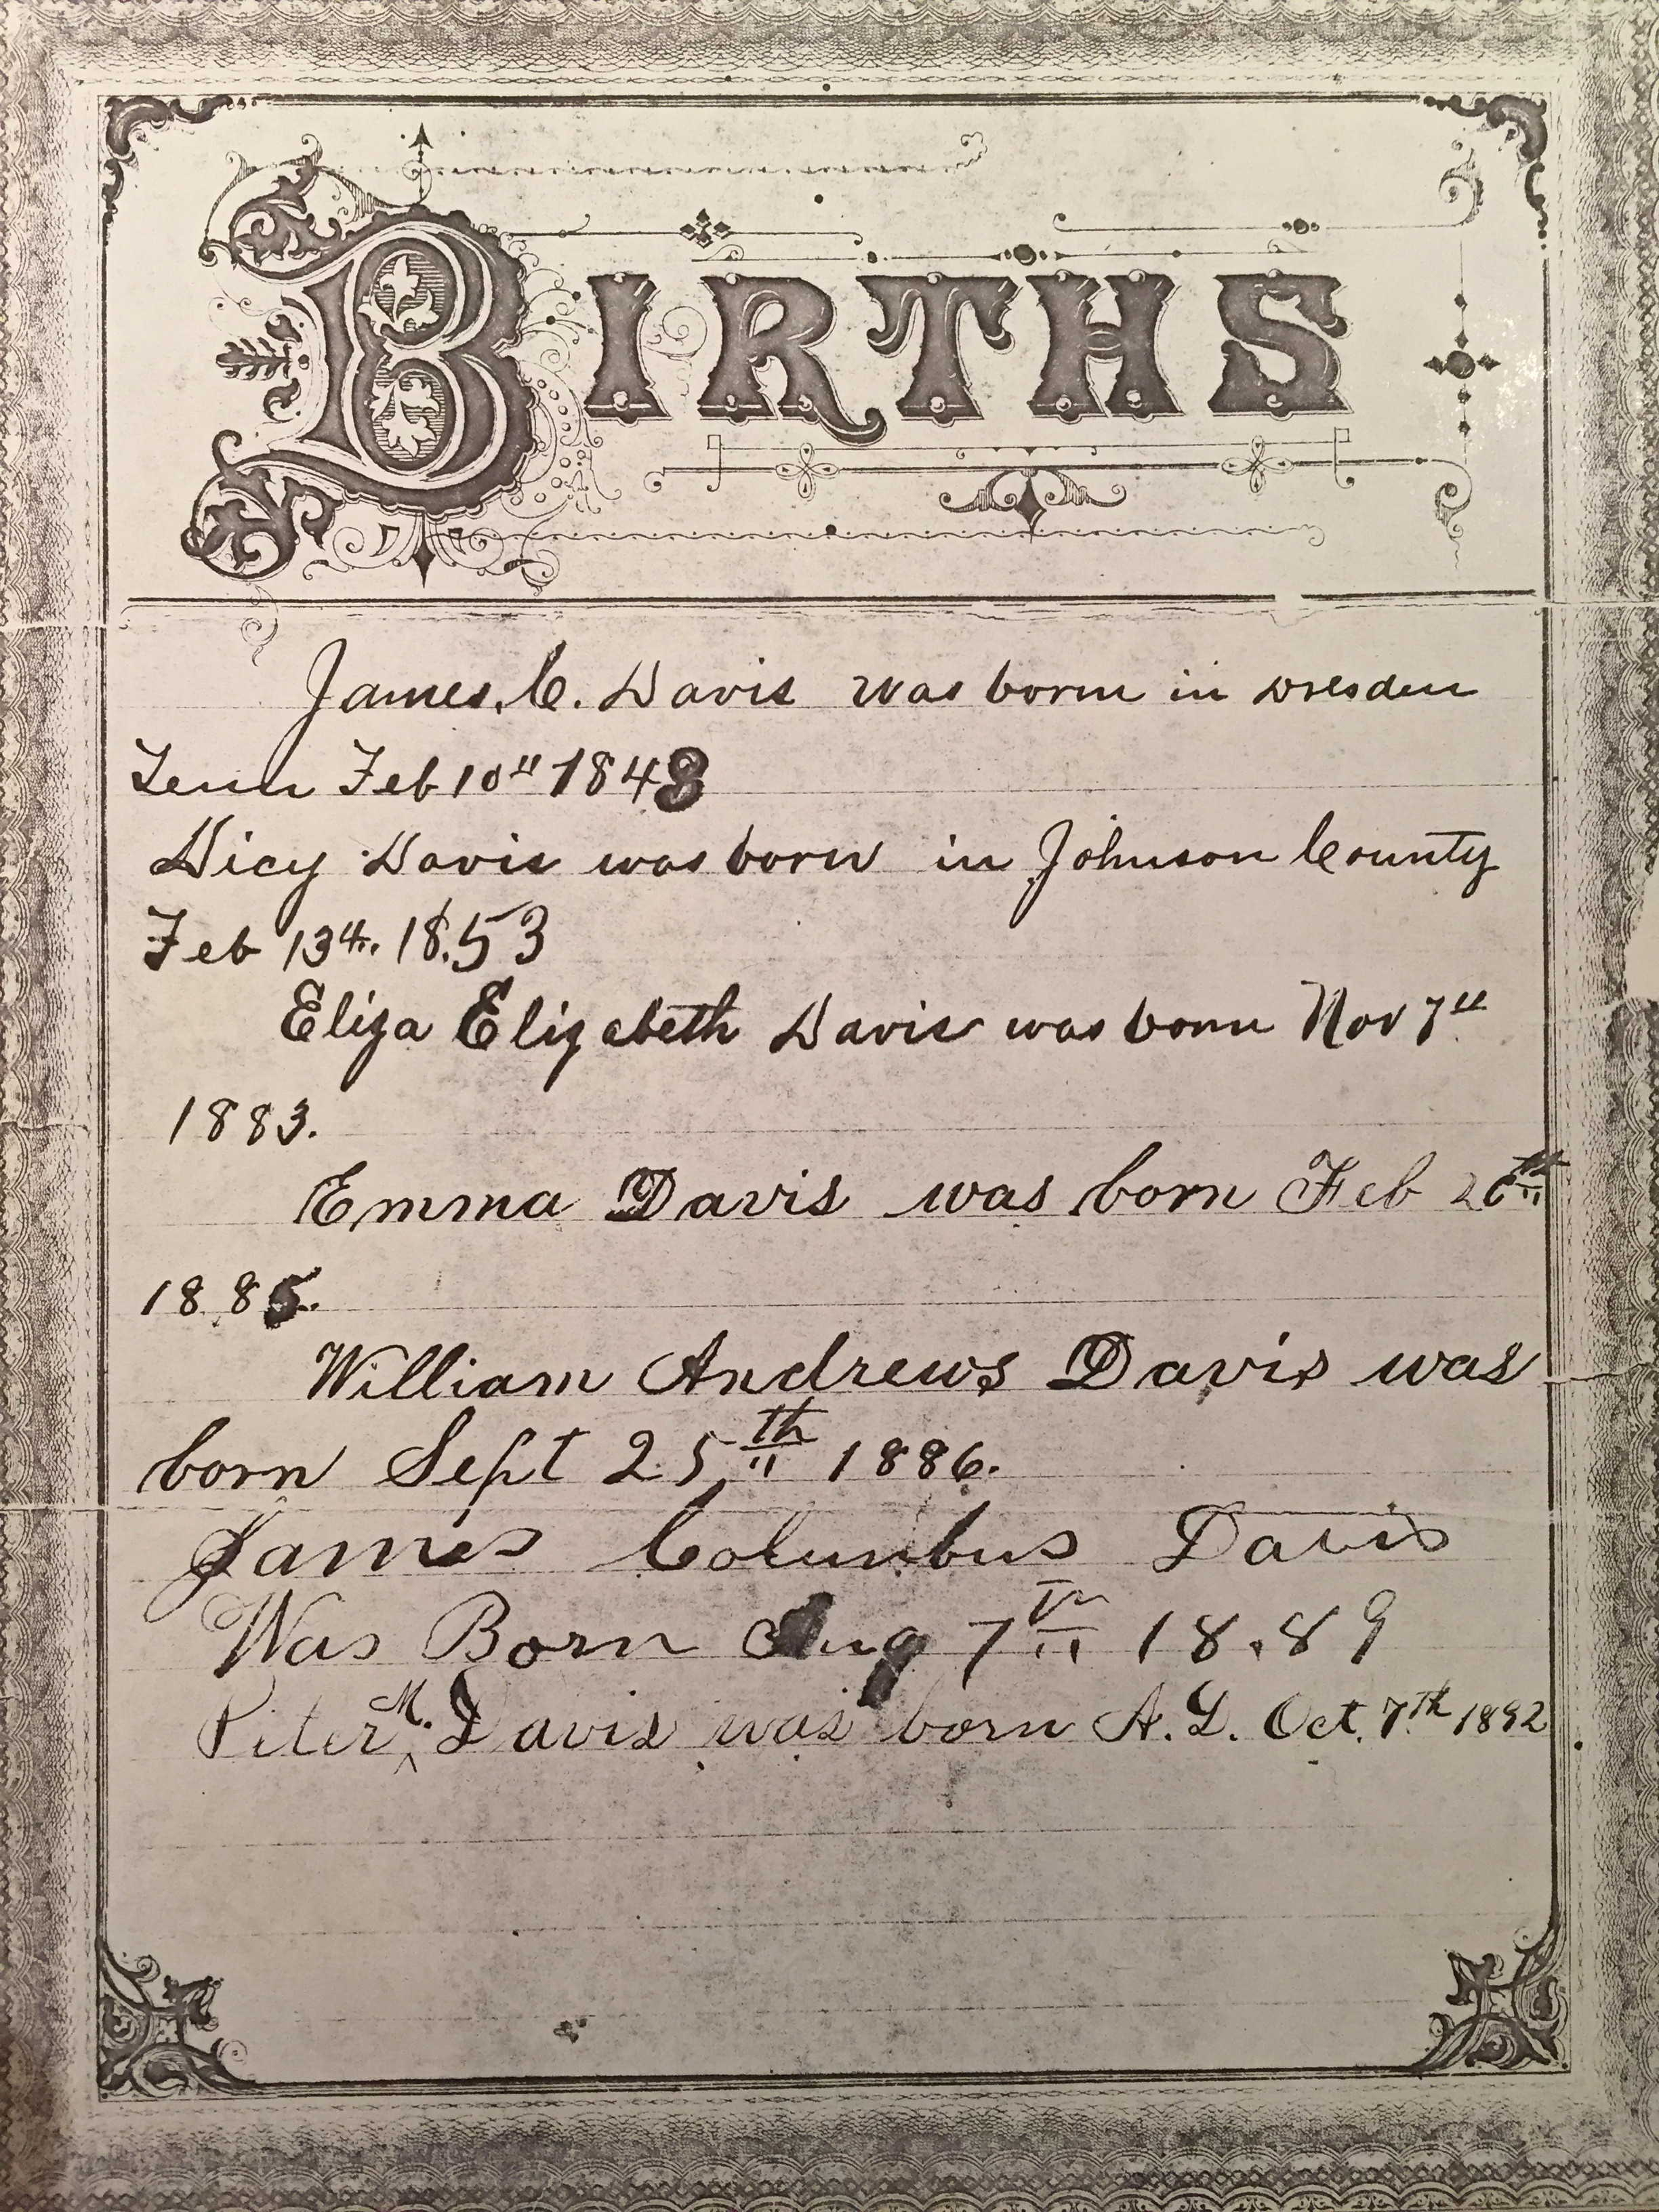 BIRTHS
James. C. Davis was born in Dresden
Tenn Feb 10th 1843
Dicy Davis was born in Johnson County
Feb 13th. 18.53
Eliza Elizebeth Davis was born Nov 7th
1883.
Emma Davis was born Feb 26th
1885.
William Andrews Davis was
born Sept 25th 1886.
James Columbus Davis
Was Born Aug 7th 18.89
Peter M. Davis was born A.D. Oct. 7th 1892